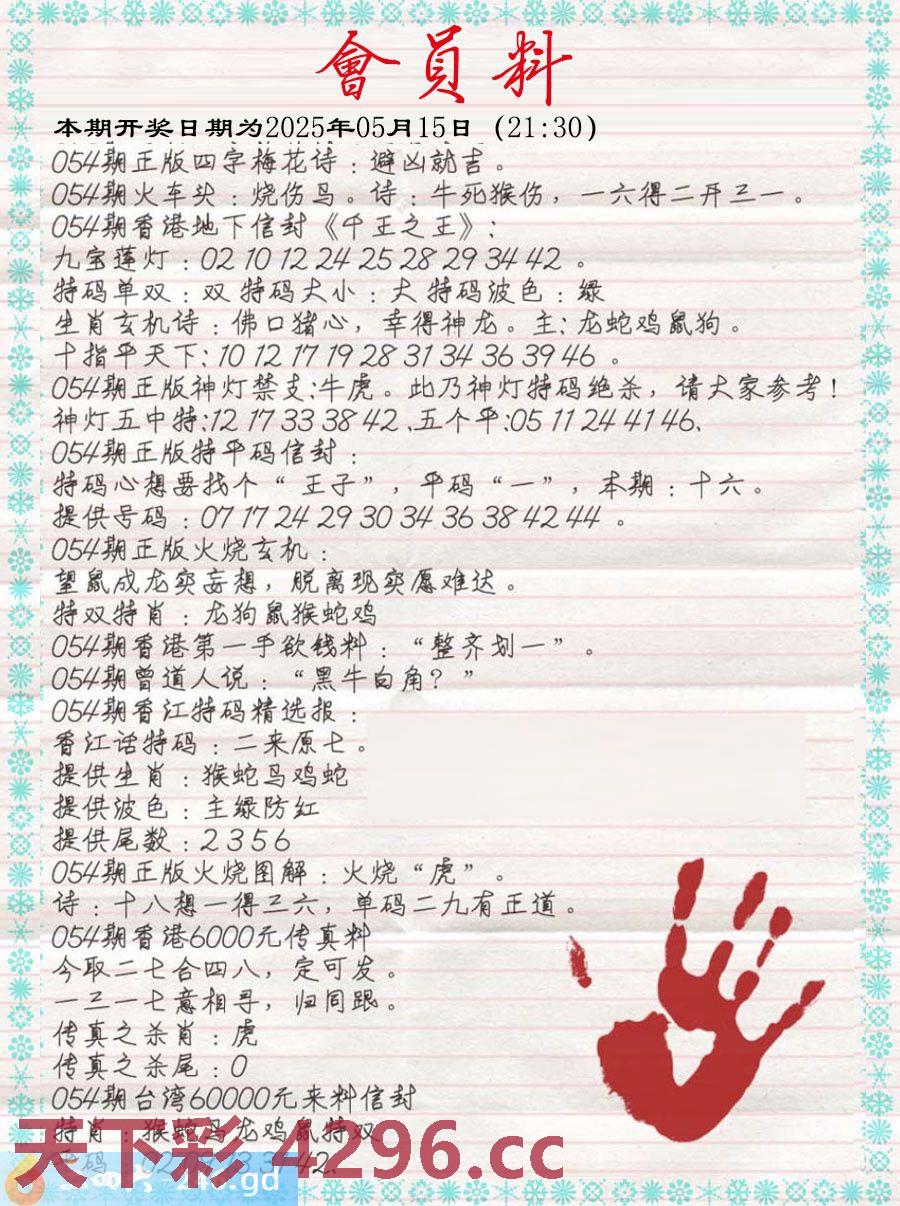 會員料
本期开奖日期为2025年05月15日 (21:30)
054期正版四字梅花诗：避凶就吉。
054期火车头：烧伤鸟。诗：牛死猴伤，一六得二开三一。
054期香港地下信封《千王之王》：
九宝莲灯：02 10 12 24 25 28 29 34 42 。
特码单双：双 特码大小：大 特码波色：绿
生肖玄机诗：佛口猪心，幸得神龙。主：龙蛇鸡鼠狗。
十指平天下：10 12 17 19 28 31 34 36 39 46 。
054期正版神灯禁支:牛虎。此乃神灯特码绝杀，请大家参考！
神灯五中特:12 17 33 38 42 、五个平:05 11 24 41 46、
054期正版特平码信封：
特码心想要找个“王子”，平码“一”，本期：十六。
提供号码：07 17 24 29 30 34 36 38 42 44 。
054期正版火烧玄机：
望鼠成龙实妄想，脱离现实愿难达。
特双特肖：龙狗鼠猴蛇鸡
054期香港第一手欲钱料：“整齐划一”。
054期曾道人说：“黑牛白角？”
054期香江特码精选报：
香江话特码：二来原七。
提供生肖：猴蛇鸟鸡蛇
提供波色：主绿防红
提供尾数：2 3 5 6
054期正版火烧图解：火烧“虎”。
诗：十八想一得三六，单码二九有正道。
054期香港6000元传真料
今取二七合四八，定可发。
一三一七意相寻，归同跟。
传真之杀肖：虎
传真之杀尾：0
054期台湾60000元来料信封
特肖：猴蛇鸟龙鸡鼠特双
天下彩 4296.cc